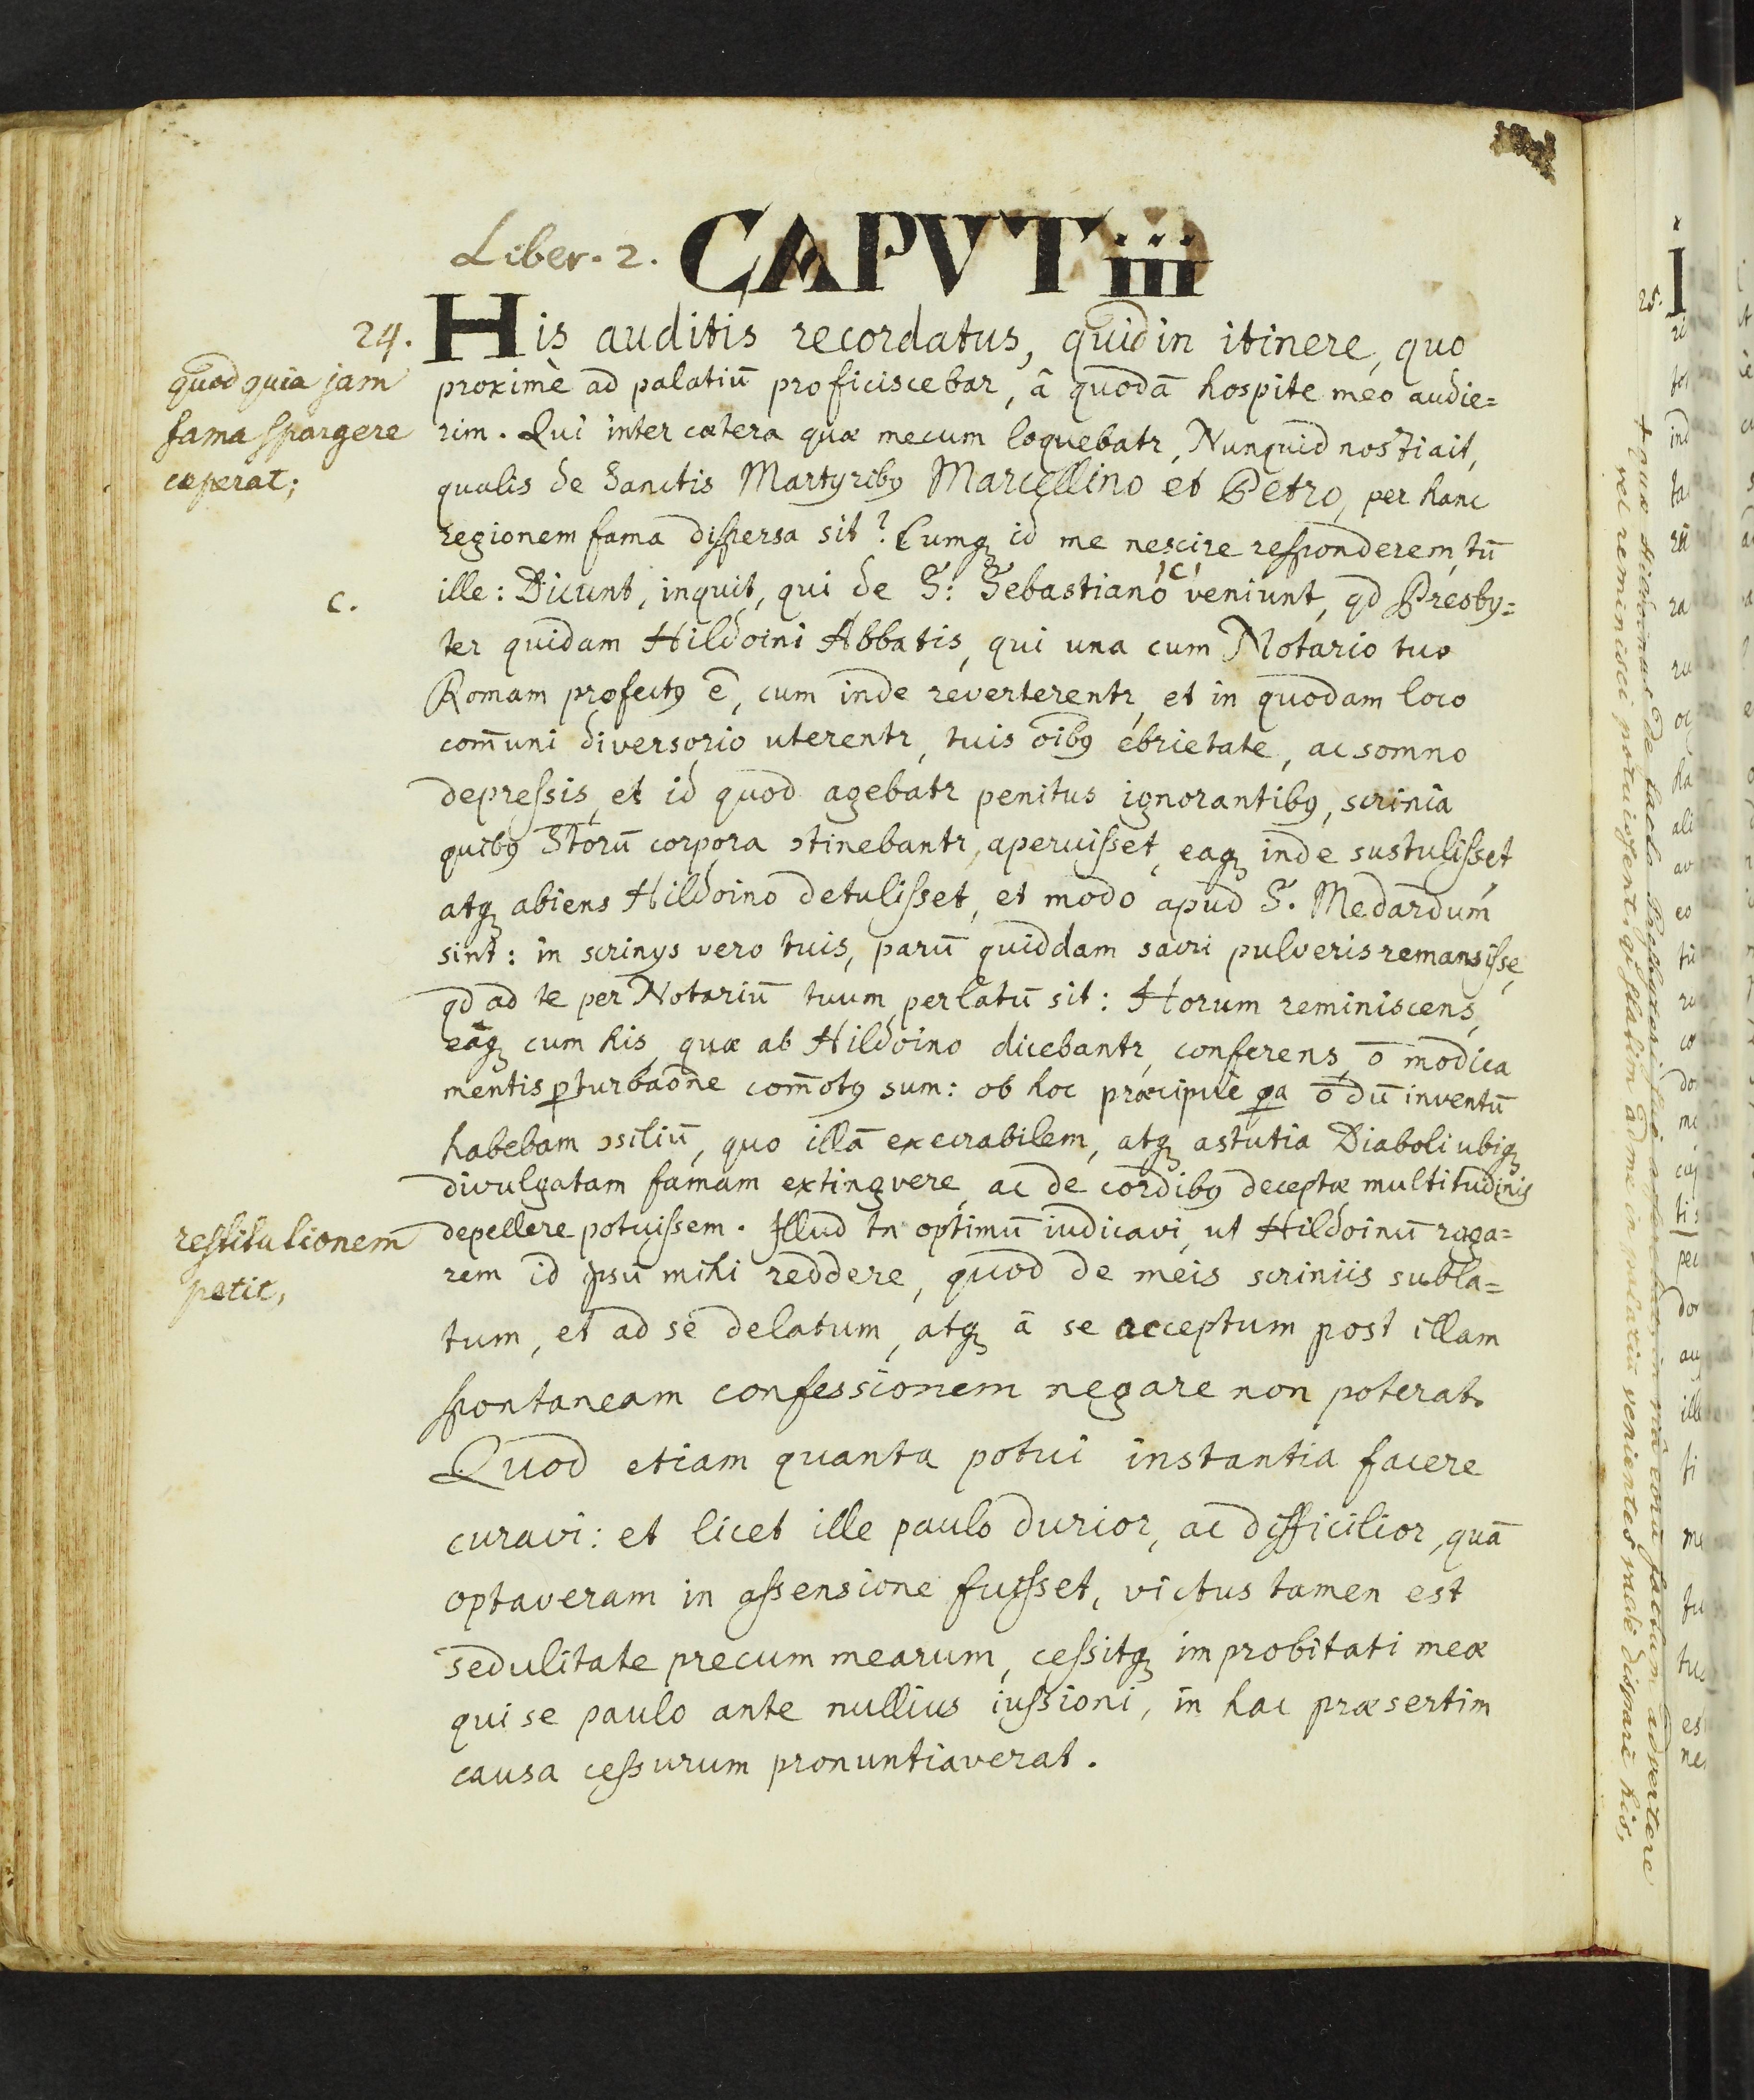 Liber. 2. CAPVT iii
24. His auditis recordatus, quid in itinere, quo
quod quia jam
fama spargere
cæperat;
proximè ad palatiū proficiscebar, â quodā hospite meo audie=
rim. Qui inter cætera quæ mecum loquebatr, Nunquid nosti ait,
qualis de Sanctis Martyribꝰ Marcellino et Petro, per hanc
regionem fama dispersa sit? Cumqꝫ id me nescire responderem, tū
c.
ille: Dicunt, inquit, qui de S: Sebastiano ıcı veniunt, qd Presby=
ter quidam Hildoini Abbatis, qui una cum Notario tuo
Romam profectꝰ ē, cum inde reverterentr, et in quodam loco
com̄uni diversorio uterentr, tuis oībꝰ ebrietate, ac somno
depressis, et id quod agebatr penitus ignorantibꝰ, scrinia
quibꝰ Stōrū corpora ↄtinebantr, aperuisset, eaqꝫ inde sustulisset,
atqꝫ abiens Hildoino detulisset, et modo apud S. Medardum
sint: in scrinys vero tuis, parū quiddam sacri pulveris remansisse,
qd ad te per Notariū tuum perlatū sit: Horum reminiscens,
eaqꝫ cum his, quæ ab Hildoino dicebantr, conferens, ō modica
mentis ꝑturbaōne com̄otꝰ sum: ob hoc præcipuè qa ō dū inventū
habebam ↄsiliū, quo illā execrabilem, atqꝫ astutia Diaboli ubiqꝫ
divulgatam famam extingvere, ac de cordibꝰ deceptæ multitudinis
restitutionem
petit,
depellere potuissem. Illud tn optimū iudicavi, ut Hildoinū roga=
rem id ipsū mihi reddere, quod de meis scriniis subla=
tum, et ad se delatum, atqꝫ â se acceptum post illam
spontaneam confessionem negare non poterat.
Quod etiam quanta potui instantia facere
curavi: et licet ille paulo durior, ac difficilior, quā
optaveram in assensione fuisset, victus tamen est
sedulitate precum mearum, cessitqꝫ improbitati meæ
qui se paulo ante nullius iussioni, in hac præsertim
causa cessurum pronuntiaverat.
25. I
vel reminisci potuissent
venientes
his,